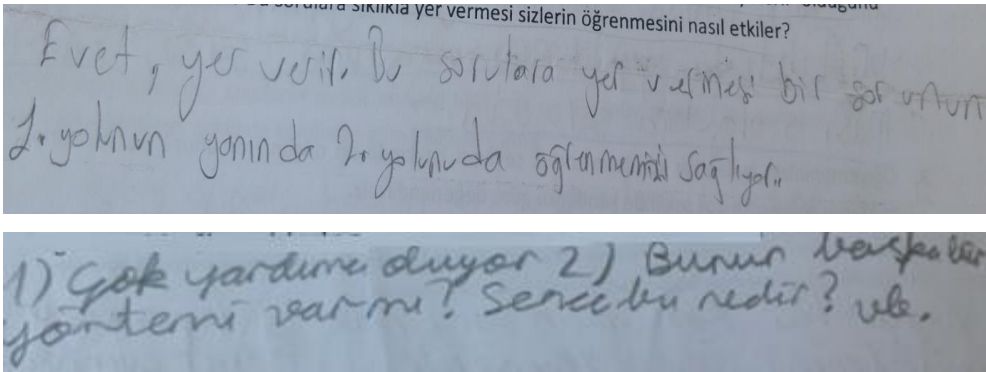 sorulara sıklıkla yer vermesi sizlerin öğrenmesini nasıl etkiler?
Evet, yer verir. Bu sorulara yer vermesi bir sorunun
1. yolunun yanında 2. yolunuda öğrenmemizi sağlıyor..
1) Çok yardımcı oluyor 2) Bunun başka bir
yöntemi var mı? Sence bu nedir? vb.